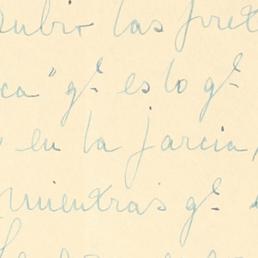 rubio las
ca" q.e es lo q.e
en la jarcia,
mientras q.e